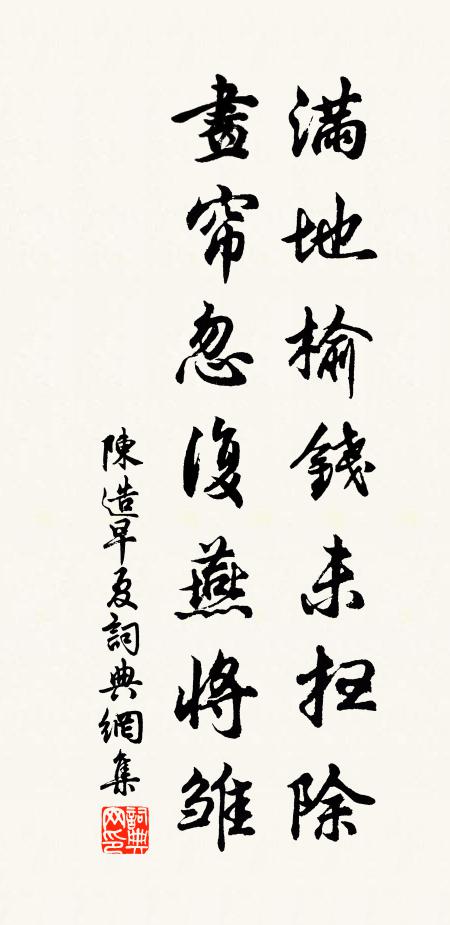 滿地榆錢未扫除
畫帘忽復燕将雏
陳造早夏詞典網集
詞典
网印